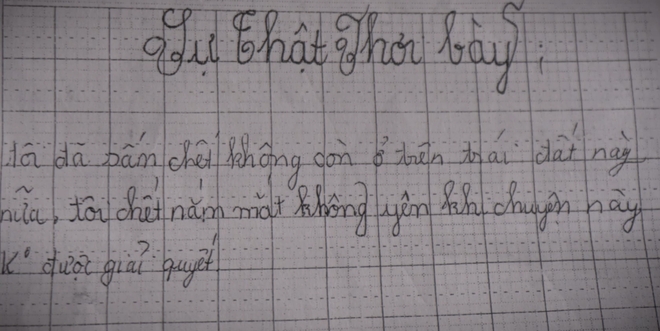 Sự thật Phơi bày
tôi đã bấm chết không còn ở trên trái đất này
nữa, tôi chết nằm mắt không yên khi chuyện này
K° được giải quyết